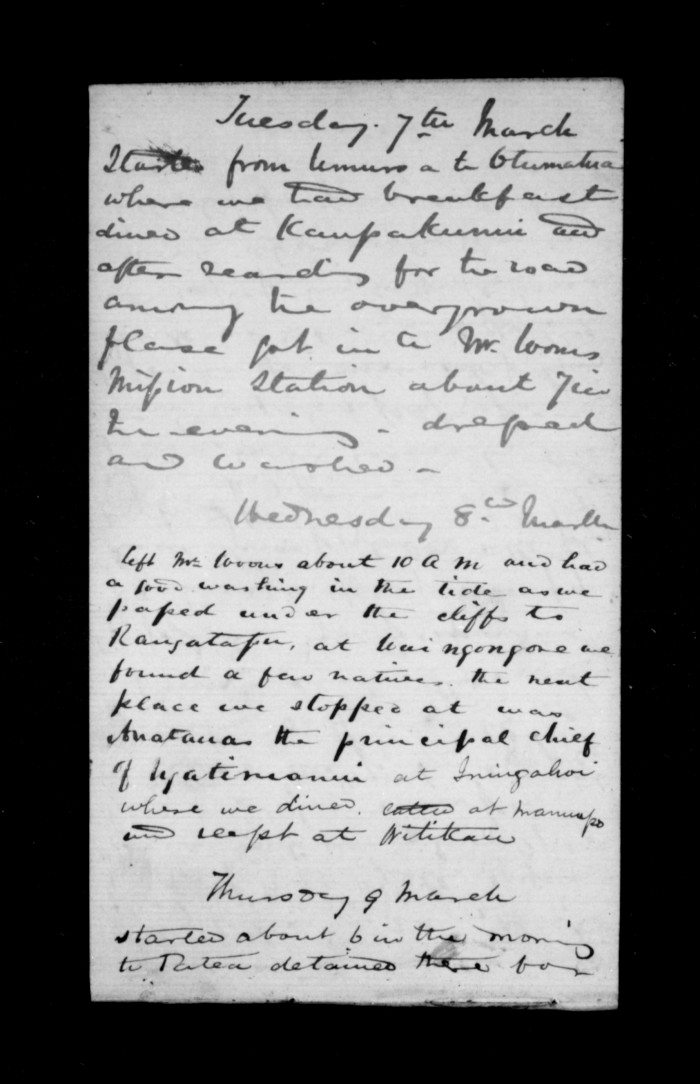 Tuesday. 7th March
Started from Umuroa to Otumatua
where we had breakfast
dined at Kaupokunui and
after searching for the road
among the overgrown
place got in to Mr. Woons
Mission Station about 7 in
the evening - dressed
and washed -
Wednesday 8th March
left Mr Woons about 10 A M and had
a good washing in the tide as we
passed under the cliffs to
Rangatapu, at Waingongoro we
found a few natives. the next
place we stopped at was
Anatauas the principal chief
of Ngatimanui at Iningahoi
where we dined. called at Manuapo
and slept at Witikau
Thursday 9 March
started about 6 in the morning
to Patea detained there